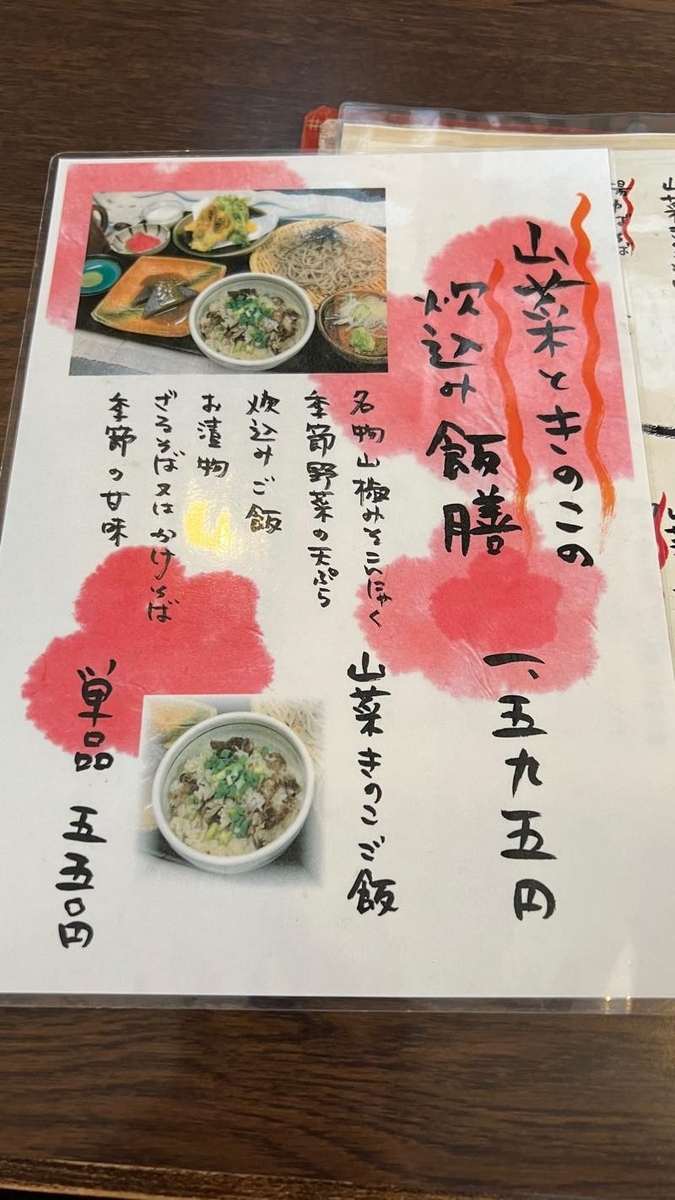 山菜ときのこの
炊込み飯膳
一、五九五円
名物山椒みそこんにゃく
季節野菜の天ぷら
炊込みご飯
お漬物
ざるそば又はかけそば
季節の甘味
山菜きのこご飯
単品 五五〇円